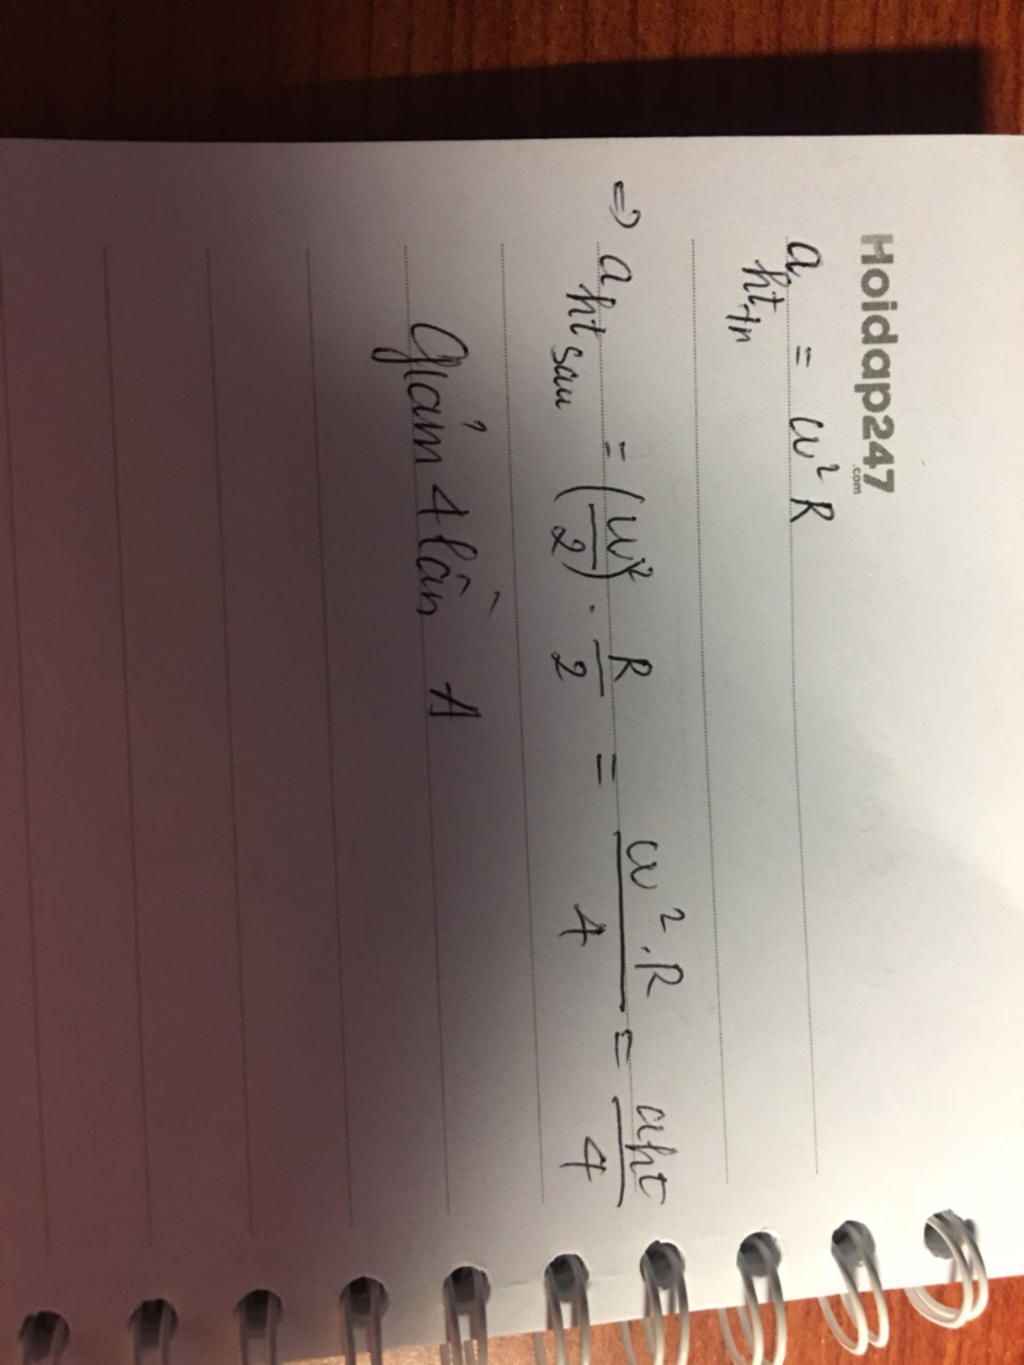 Hoidap247
.com
a ht tr = ω² R
⇒ a ht sau = (ω/2)² · R/2 = ω².R/4 = aht/4
Giảm 4 lần A